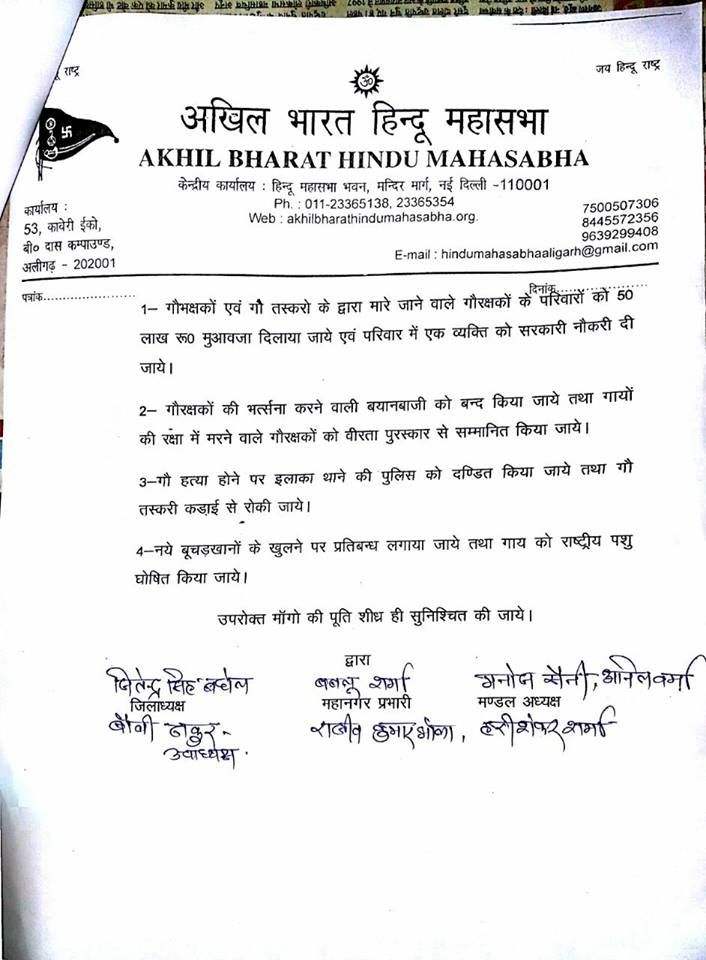 राष्ट्र
जय हिन्दू राष्ट्र
ॐ
अखिल भारत हिन्दू महासभा
AKHIL BHARAT HINDU MAHASABHA
केन्द्रीय कार्यालय : हिन्दू महासभा भवन, मन्दिर मार्ग, नई दिल्ली -110001
Ph. : 011-23365138, 23365354
Web : akhilbharathindumahasabha.org.
कार्यालय :
53, कावेरी ईको,
बी० दास कम्पाउण्ड,
अलीगढ़ - 202001
7500507306
8445572356
9639299408
E-mail : hindumahasabhaaligarh@gmail.com
पत्रांक........................ दिनांक........................
1– गौभक्षकों एवं गौ तस्करो के द्वारा मारे जाने वाले गौरक्षकों के परिवारों को 50
लाख रू0 मुआवजा दिलाया जाये एवं परिवार में एक व्यक्ति को सरकारी नौकरी दी
जाये।
2– गौरक्षकों की भर्त्सना करने वाली बयानबाजी को बन्द किया जाये तथा गायों
की रक्षा में मरने वाले गौरक्षकों को वीरता पुरस्कार से सम्मानित किया जाये।
3–गौ हत्या होने पर इलाका थाने की पुलिस को दण्डित किया जाये तथा गौ
तस्करी कडाई से रोकी जाये।
4–नये बूचड़खानों के खुलने पर प्रतिबन्ध लगाया जाये तथा गाय को राष्ट्रीय पशु
घोषित किया जाये।
उपरोक्त मॉगो की पूति शीध्र ही सुनिश्चित की जाये।
द्वारा
जितेन्द्र सिंह बघेल बबलू शर्मा मनोज सैनी, अनिल वर्मा
जिलाध्यक्ष महानगर प्रभारी मण्डल अध्यक्ष
बौनी ठाकुर - राजीव कुमार भोला, हरीशंकर शर्मा
उपाध्यक्ष.